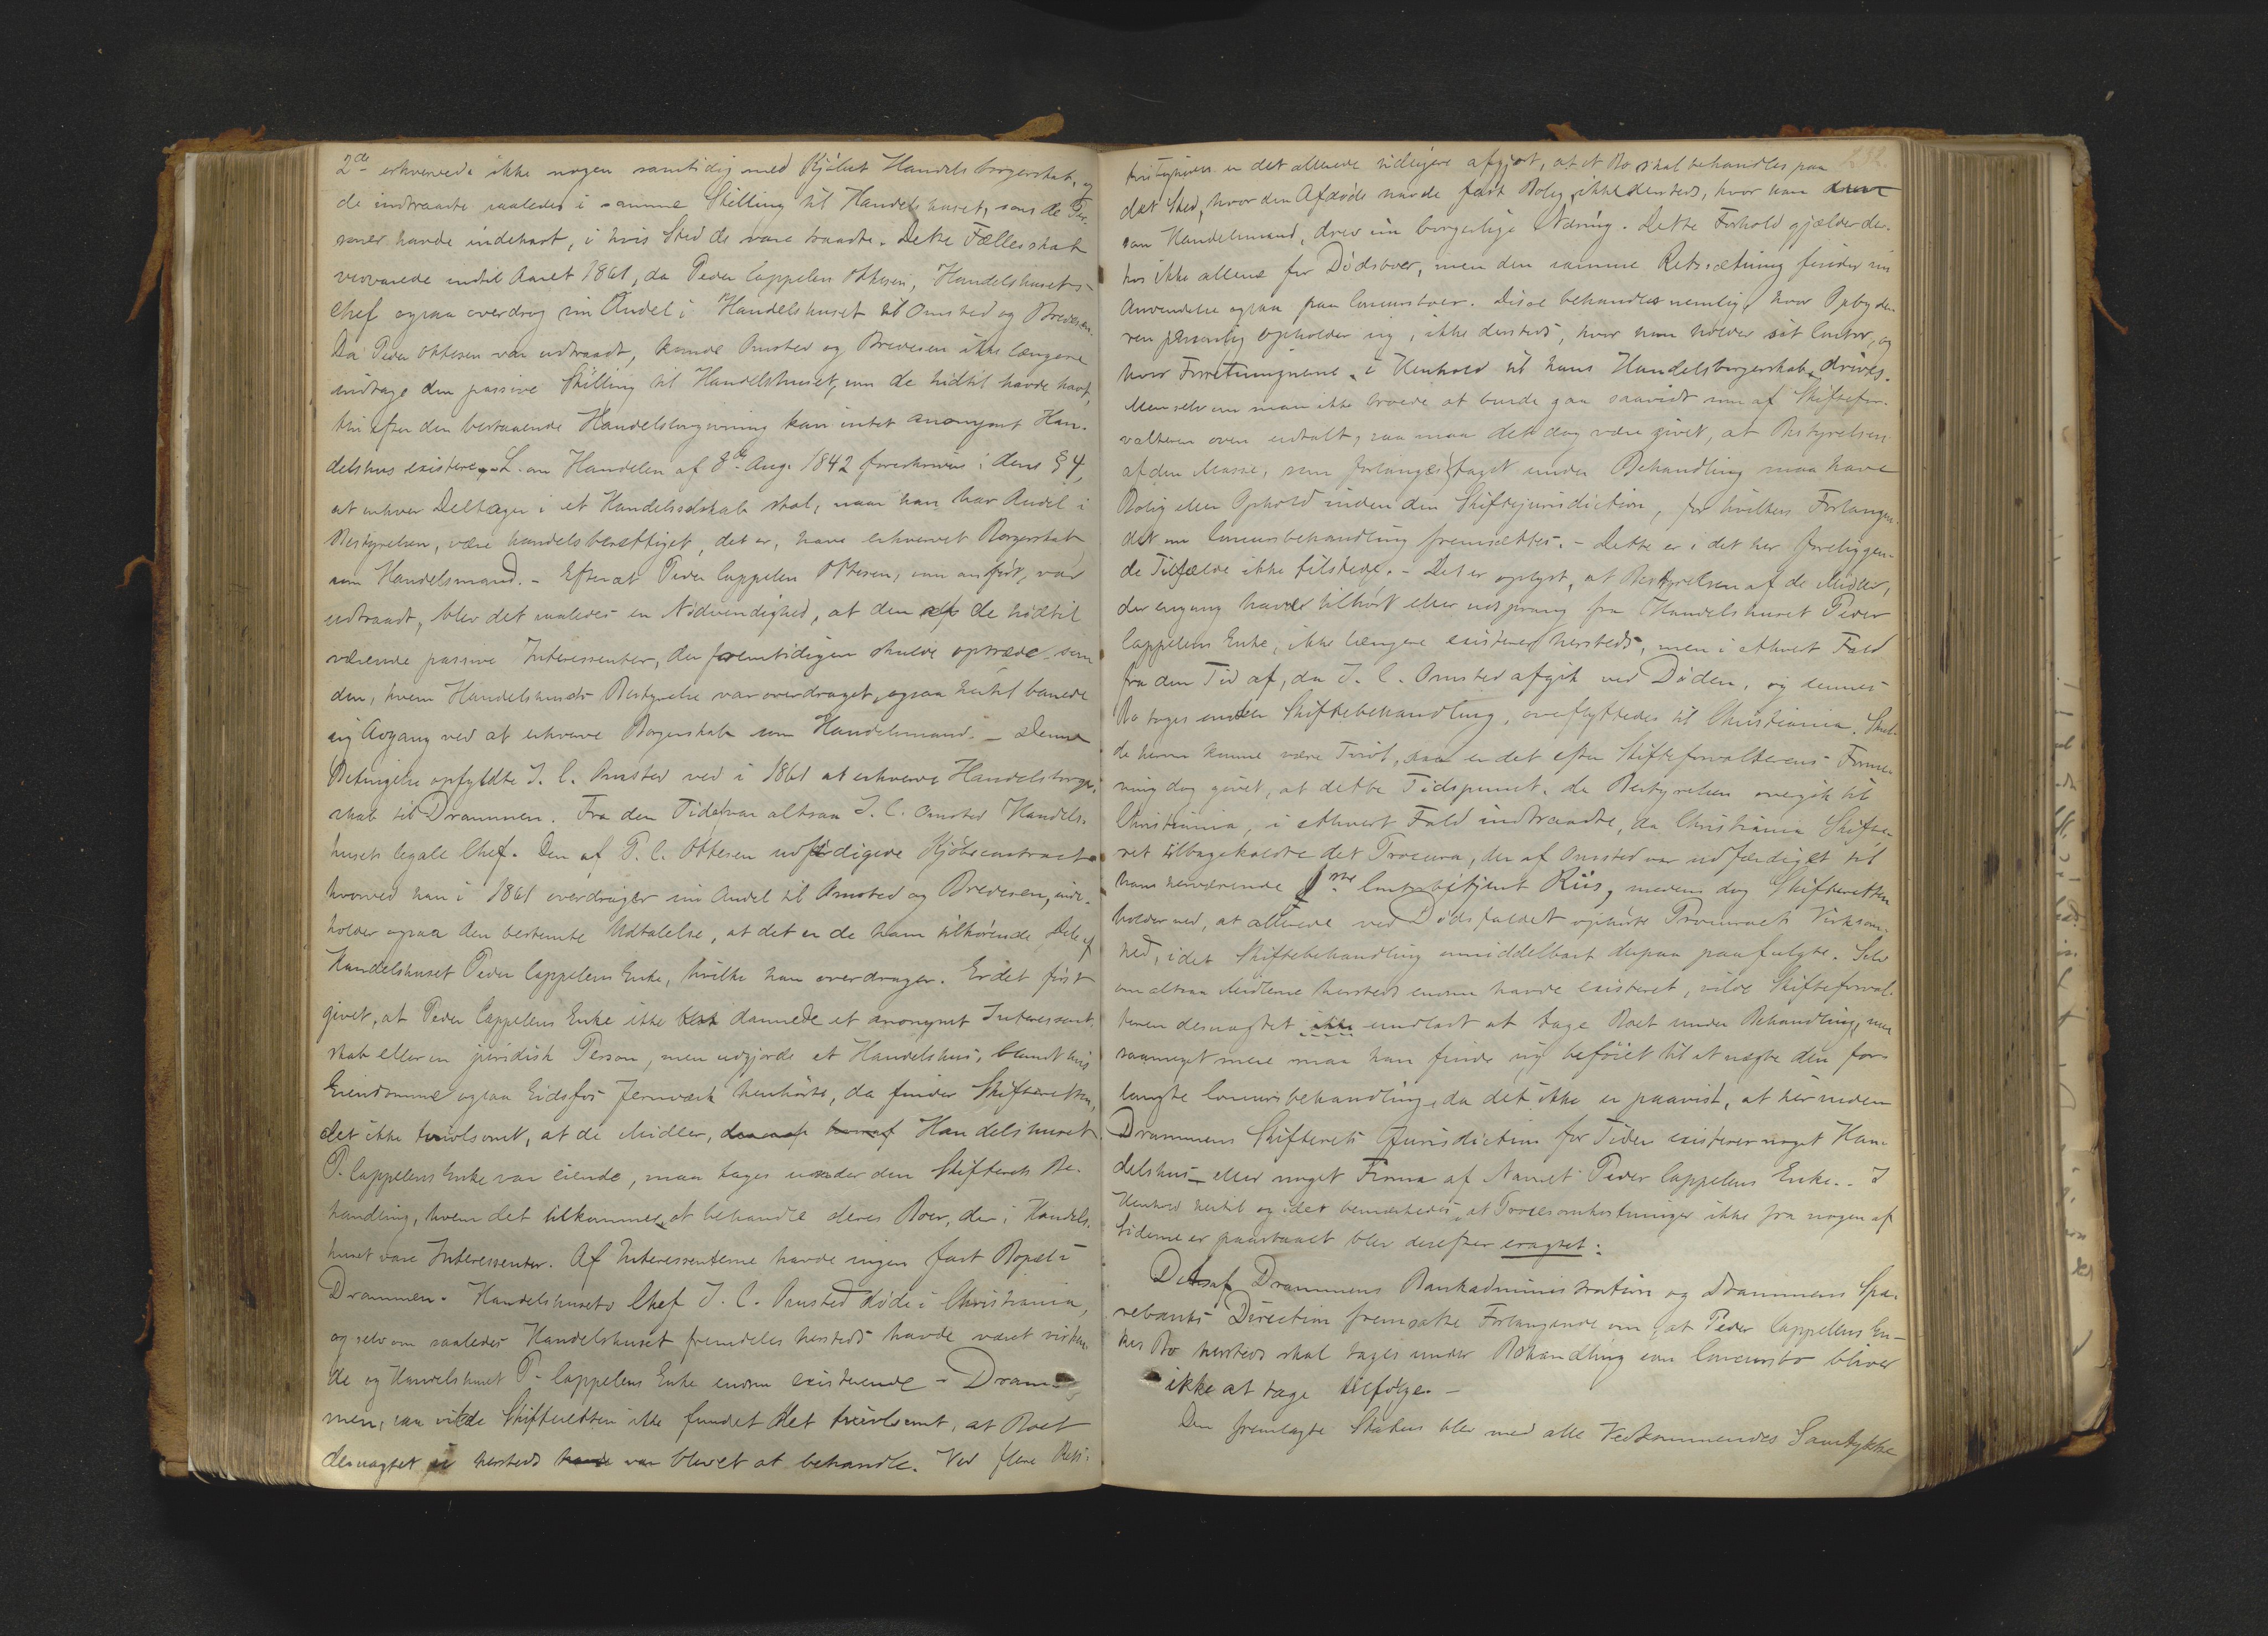 2de erhvervede ikke nogen samtidig med Kjøbet Handelsborgerskab, og
de indtraadte saaledes i samme Stilling til Handelshuset, som de Per-
soner havde indehavt, i hvis Sted de vare traadte. Dette Fællesskab
vedvarede indtil Aaret 1861, da Peder Cappelen Ottesen, Handelshusets
Chef ogsaa overdrog sin Andel i Handelshuset til Omsted og Bredesen.
Da Peder Ottesen var udtraadt, kunde Omsted og Bredesen ikke længere
indtage den passive Stilling til Handelshuset, som de hidtil havde havt,
thi efter den bestaaende Handelslovgivning kan intet anonymt Han-
delshus existere. L. om Handelen af 8de Aug. 1842 foreskriver i dens § 4,
at enhver Deltager i et Handelsselskab skal, naar han har Andel i
Bestyrelsen, være handelsberettiget, det er, have erhvervet Borgerskab
som Handelsmand. - Efterat Peder Cappelen Ottesen, som anført, var
udtraadt, blev det saaledes en Nødvendighed, at den af de hidtil
værende passive Interessenter, der fremtidigen skulde optræde som
den, hvem Handelshusets Bestyrelse var overdraget, ogsaa hertil banede
sig Adgang ved at erhverve Borgerskab som Handelsmand. - Denne
Betingelse opfyldte J. C. Omsted ved i 1861 at erhverve Handelsborger-
skab til Drammen. Fra den Tid af var altsaa J. C. Omsted Handels-
husets legale Chef. Den af P. C. Ottesen udfærdigede Kjøbecontract
hvorved han i 1861 overdrager sin Andel til Omsted og Bredesen, inde-
holder ogsaa den bestemte Udtalelse, at det er de ham tilhørende Dele af
Handelshuset Peder Cappelens Enke, hvilke han overdrager. Er det først
givet, at Peder Cappelens Enke ikke dannede et anonymt Interessent-
skab eller en juridisk Person, men udgjorde et Handelshus, blandt hvis
Eiendomme ogsaa Eidsfos Jernværk henhørte, da finder Skifteretten,
det ikke tvivlsomt, at de Midler, hvoraf Handelshuset
P. Cappelens Enke var eiende, maa tages under den Skifterets Be-
handling, hvem det tilkommer at behandle deres Boer, der i Handels-
huset vare Interessenter. Af Interessenterne havde ingen fast Bopæl i
Drammen. Handelshusets Chef J. C. Omsted døde i Christiania,
og selv om saaledes Handelshuset fremdeles hersteds havde været virken-
de og Handelshuset P. Cappelens Enke endnu existerende i Dram-
men, saa vilde Skifteretten ikke fundet det tvivlsomt, at Boet
desuagtet ei hersteds var blevet at behandle. Ved flere Rets-
252.
kristigheder er det allerede tidligere afgjort, at et Bo skal behandles paa
det Sted, hvor den Afdøde havde fast Bolig, ikke dersteds, hvor han
som Handelsmand, drev sin borgerlige Næring. Dette Forhold gjælder der-
hos ikke allene for Dødsboer, men den samme Retssætning finder sin
Anvendelse ogsaa paa Concursboer. Disse behandles nemlig, hvor Opbyde-
ren personlig opholder sig, ikke dersteds, hvor han holder sit Contor, og
hvor Forretningerne, i Henhold til hans Handelsborgerskab, drives.
Men selv om man ikke troede at burde gaa saavidt som af Skiftefor-
valteren oven udtalt, saa maa det dog være givet, at Bestyrelsen
af den Masse, som forlanges taget under Behandling maa have
Bolig eller Ophold inden den Skiftejurisdiction, for hvilken Forlangen-
det om Concursbehandling fremsættes. - Dette er i det her foreliggen-
de Tilfælde ikke tilstede. - Det er oplyst, at Bestyrelsen af de Midler,
der engang havde tilhørt eller udsprang fra Handelshuset Peder
Cappelens Enke, ikke længere existerer hersteds, men i ethvert Fald
fra den Tid af, da J. C. Omsted afgik ved Døden, og dennes
Bo toges under Skiftebehandling, overflyttedes til Christiania. Skul-
de herom kunne være Tvivl, saa er det efter Skifteforvalterens Forme-
ning dog givet, at dette Tidspunct, da Bestyrelsen overgik til
Christiania, i ethvert Fald indtraadte, da Christiania Skifte-
ret tilbagekaldte det Procura, der af Omsted var udfærdiget til
hans herværende Contorbetjent Riis, medens dog Skifteretten
holder ved, at allerede ved Dødsfaldet ophørte Procuraets Virksom-
hed, idet Skiftebehandling umiddelbart derpaa paafulgte. Selv
om altsaa Midlerne hersteds endnu havde existeret, vilde Skifteforval-
teren desuagtet ikke undladt at tage Boet under Behandling, men
saameget mere maa han finde sig beføiet til at nægte den for-
langte Concursbehandling, da det ikke er paavist, at her inden
Drammens Skifterets Jurisdiction for Tiden existerer noget Han-
delshus eller noget Firma af Navnet Peder Cappelens Enke. - I
Henhold hertil og idet bemærkedes, at Procesomkostninger ikke fra nogen af
Siderne er paastaaet blev derefter eragtet:
Det af Drammens Bankadministration og Drammens Spa-
rebanks Direction fremsatte Forlangende om, at Peder Cappelens En-
kes Bo hersteds skal tages under Behandling som Concursbo bliver
ikke at tage tilfølge. -
Den fremlagte Status blev med alle Vedkommendes Samtykke